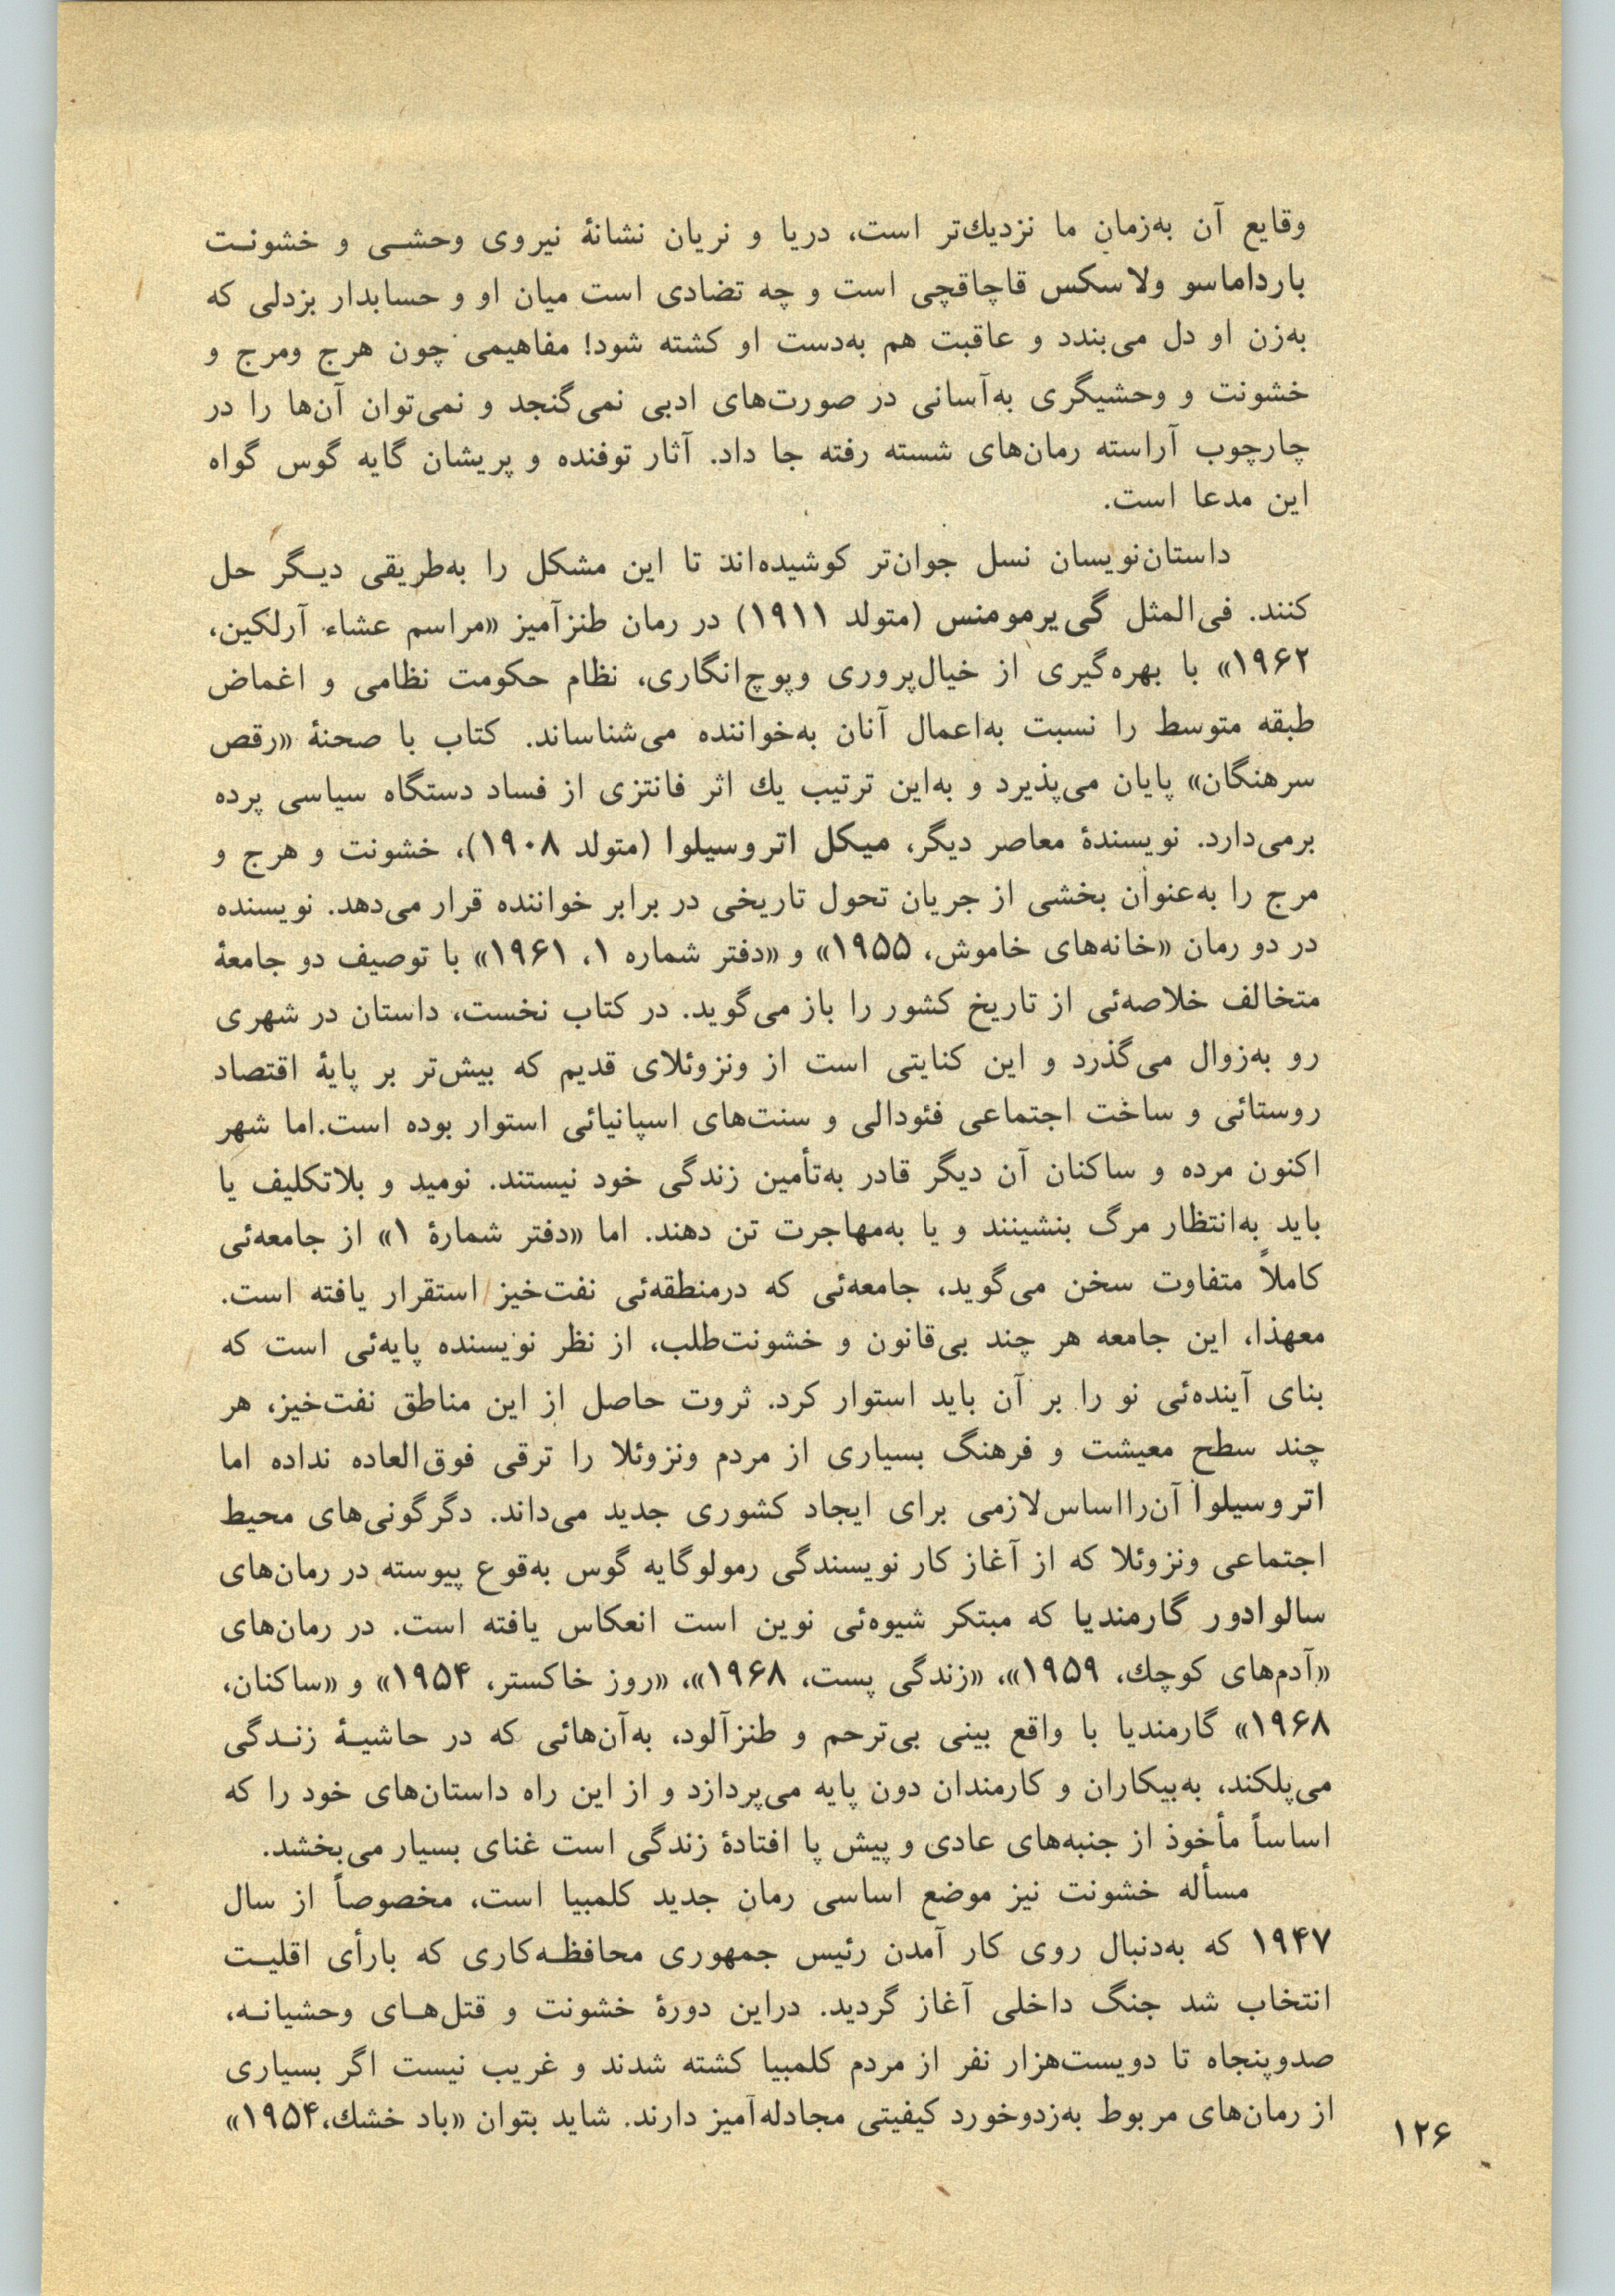 وقایع آن به‌زمان ما نزدیك‌تر است، دریا و نریان نشانهٔ نیروی وحشی و خشونت
بارداماسو ولاسکس قاچاقچی است و چه تضادی است میان او و حسابدار بزدلی که
به‌زن او دل می‌بندد و عاقبت هم به‌دست او کشته شود! مفاهیمی چون هرج ومرج و
خشونت و وحشیگری به‌آسانی در صورت‌های ادبی نمی‌گنجد و نمی‌توان آن‌ها را در
چارچوب آراسته رمان‌های شسته رفته جا داد. آثار توفنده و پریشان گایه گوس گواه
این مدعا است.
داستان‌نویسان نسل جوان‌تر کوشیده‌اند تا این مشکل را به‌طریقی دیگر حل
کنند. فی‌المثل گی‌یرمومنس (متولد ۱۹۱۱) در رمان طنزآمیز «مراسم عشاء آرلکین،
۱۹۶۲» با بهره‌گیری از خیال‌پروری وپوچ‌انگاری، نظام حکومت نظامی و اغماض
طبقه متوسط را نسبت به‌اعمال آنان به‌خواننده می‌شناساند. کتاب با صحنهٔ «رقص
سرهنگان» پایان می‌پذیرد و به‌این ترتیب یك اثر فانتزی از فساد دستگاه سیاسی پرده
برمی‌دارد. نویسندهٔ معاصر دیگر، میکل اتروسیلوا (متولد ۱۹۰۸)، خشونت و هرج و
مرج را به‌عنوان بخشی از جریان تحول تاریخی در برابر خواننده قرار می‌دهد. نویسنده
در دو رمان «خانه‌های خاموش، ۱۹۵۵» و «دفتر شماره ۱، ۱۹۶۱» با توصیف دو جامعهٔ
متخالف خلاصه‌ئی از تاریخ کشور را باز می‌گوید. در کتاب نخست، داستان در شهری
رو به‌زوال می‌گذرد و این کنایتی است از ونزوئلای قدیم که بیش‌تر بر پایهٔ اقتصاد
روستائی و ساخت اجتماعی فئودالی و سنت‌های اسپانیائی استوار بوده است.اما شهر
اکنون مرده و ساکنان آن دیگر قادر به‌تأمین زندگی خود نیستند. نومید و بلاتکلیف یا
باید به‌انتظار مرگ بنشینند و یا به‌مهاجرت تن دهند. اما «دفتر شمارهٔ ۱» از جامعه‌ئی
کاملاً متفاوت سخن می‌گوید، جامعه‌ئی که درمنطقه‌ئی نفت‌خیز استقرار یافته است.
معهذا، این جامعه هر چند بی‌قانون و خشونت‌طلب، از نظر نویسنده پایه‌ئی است که
بنای آینده‌ئی نو را بر آن باید استوار کرد. ثروت حاصل از این مناطق نفت‌خیز، هر
چند سطح معیشت و فرهنگ بسیاری از مردم ونزوئلا را ترقی فوق‌العاده نداده اما
اتروسیلوا آن‌رااساس‌لازمی برای ایجاد کشوری جدید می‌داند. دگرگونی‌های محیط
اجتماعی ونزوئلا که از آغاز کار نویسندگی رمولوگایه گوس به‌قوع پیوسته در رمان‌های
سالوادور گارمندیا که مبتکر شیوه‌ئی نوین است انعکاس یافته است. در رمان‌های
«آدم‌های کوچك، ۱۹۵۹»، «زندگی پست، ۱۹۶۸»، «روز خاکستر، ۱۹۵۴» و «ساکنان،
۱۹۶۸» گارمندیا با واقع بینی بی‌ترحم و طنزآلود، به‌آن‌هائی که در حاشیهٔ زندگی
می‌پلکند، به‌بیکاران و کارمندان دون پایه می‌پردازد و از این راه داستان‌های خود را که
اساساً مأخوذ از جنبه‌های عادی و پیش پا افتادهٔ زندگی است غنای بسیار می‌بخشد.
مسأله خشونت نیز موضع اساسی رمان جدید کلمبیا است، مخصوصاً از سال
۱۹۴۷ که به‌دنبال روی کار آمدن رئیس جمهوری محافظه‌کاری که بارأی اقلیت
انتخاب شد جنگ داخلی آغاز گردید. دراین دورهٔ خشونت و قتل‌های وحشیانه،
صدوپنجاه تا دویست‌هزار نفر از مردم کلمبیا کشته شدند و غریب نیست اگر بسیاری
از رمان‌های مربوط به‌زدوخورد کیفیتی مجادله‌آمیز دارند. شاید بتوان «باد خشك،۱۹۵۴»
۱۲۶